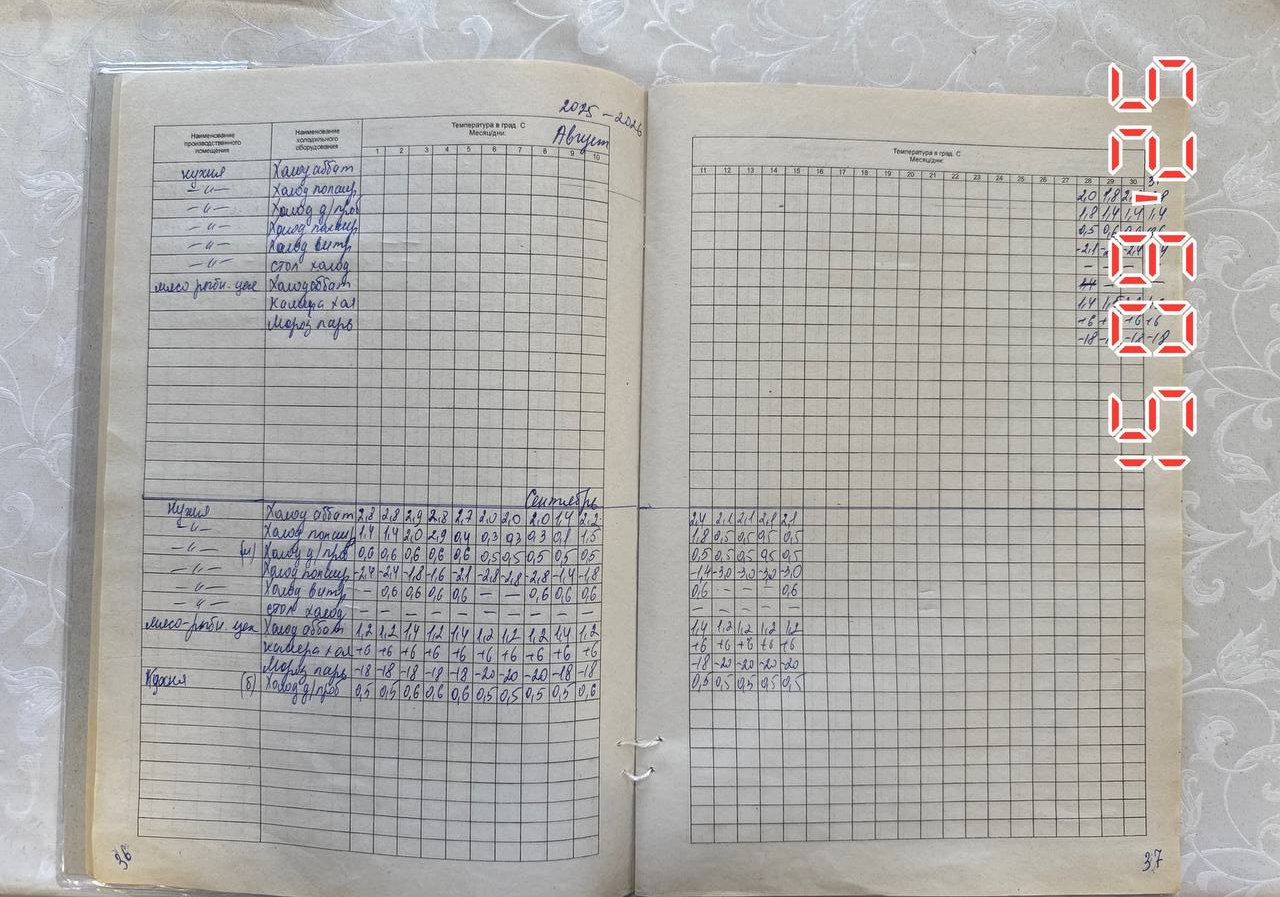 2025-2026
Наименование производственного помещения
Наименование холодильного оборудования
Температура в град. С
Месяц/дни:
Август
1 2 3 4 5 6 7 8 9 10
кухня Холод аббат
-"- Холод попаир
-"- Холод д/проб
-"- Холод попаир
-"- Холод витр
-"- стол холод
мясо рыбн. цех Холод аббат
Камера хол
Мороз ларь
Сентябрь
Кухня Холод аббат 2,8 2,8 2,9 2,8 2,7 2,0 2,0 2,0 1,4 2,2
-"- Холод попаир 1,4 1,4 2,0 2,9 0,4 0,3 0,3 0,3 0,8 1,5
-"- (м) Холод д/проб 0,6 0,6 0,6 0,6 0,6 0,5 0,5 0,5 0,5 0,5
-"- Холод попаир -2,4 -2,4 -1,8 -1,6 -2,1 -2,8 -2,8 -2,8 -1,4 -1,8
-"- Холод витр - 0,6 0,6 0,6 0,6 - - 0,6 0,6 0,6
-"- стол холод - - - - - - - - - -
мясо-рыбн. цех Холод аббат 1,2 1,2 1,4 1,2 1,4 1,2 1,2 1,2 1,4 1,2
камера хол +6 +6 +6 +6 +6 +6 +6 +6 +6 +6
Мороз ларь -18 -18 -18 -18 -18 -20 -20 -20 -18 -18
Кухня (б) Холод д/проб 0,5 0,5 0,6 0,6 0,6 0,5 0,5 0,5 0,5 0,6
36
Температура в град. С
Месяц/дни:
11 12 13 14 15 16 17 18 19 20 21 22 23 24 25 26 27 28 29 30
2,0 1,8
1,8 1,4 1,4 1,4
0,5
-2,1
1,4
+6 +6 +6
-18 -18 -18
2,4 2,1 2,1 2,1 2,1
1,8 0,5 0,5 0,5 0,5
0,5 0,5 0,5 0,5 0,5
-1,4 -3,0 -3,0 -3,0 -3,0
0,6 - - - 0,6
- - - - -
1,4 1,2 1,2 1,2 1,2
+6 +6 +6 +6 +6
-18 -20 -20 -20 -20
0,5 0,5 0,5 0,5 0,5
37
15-09-25